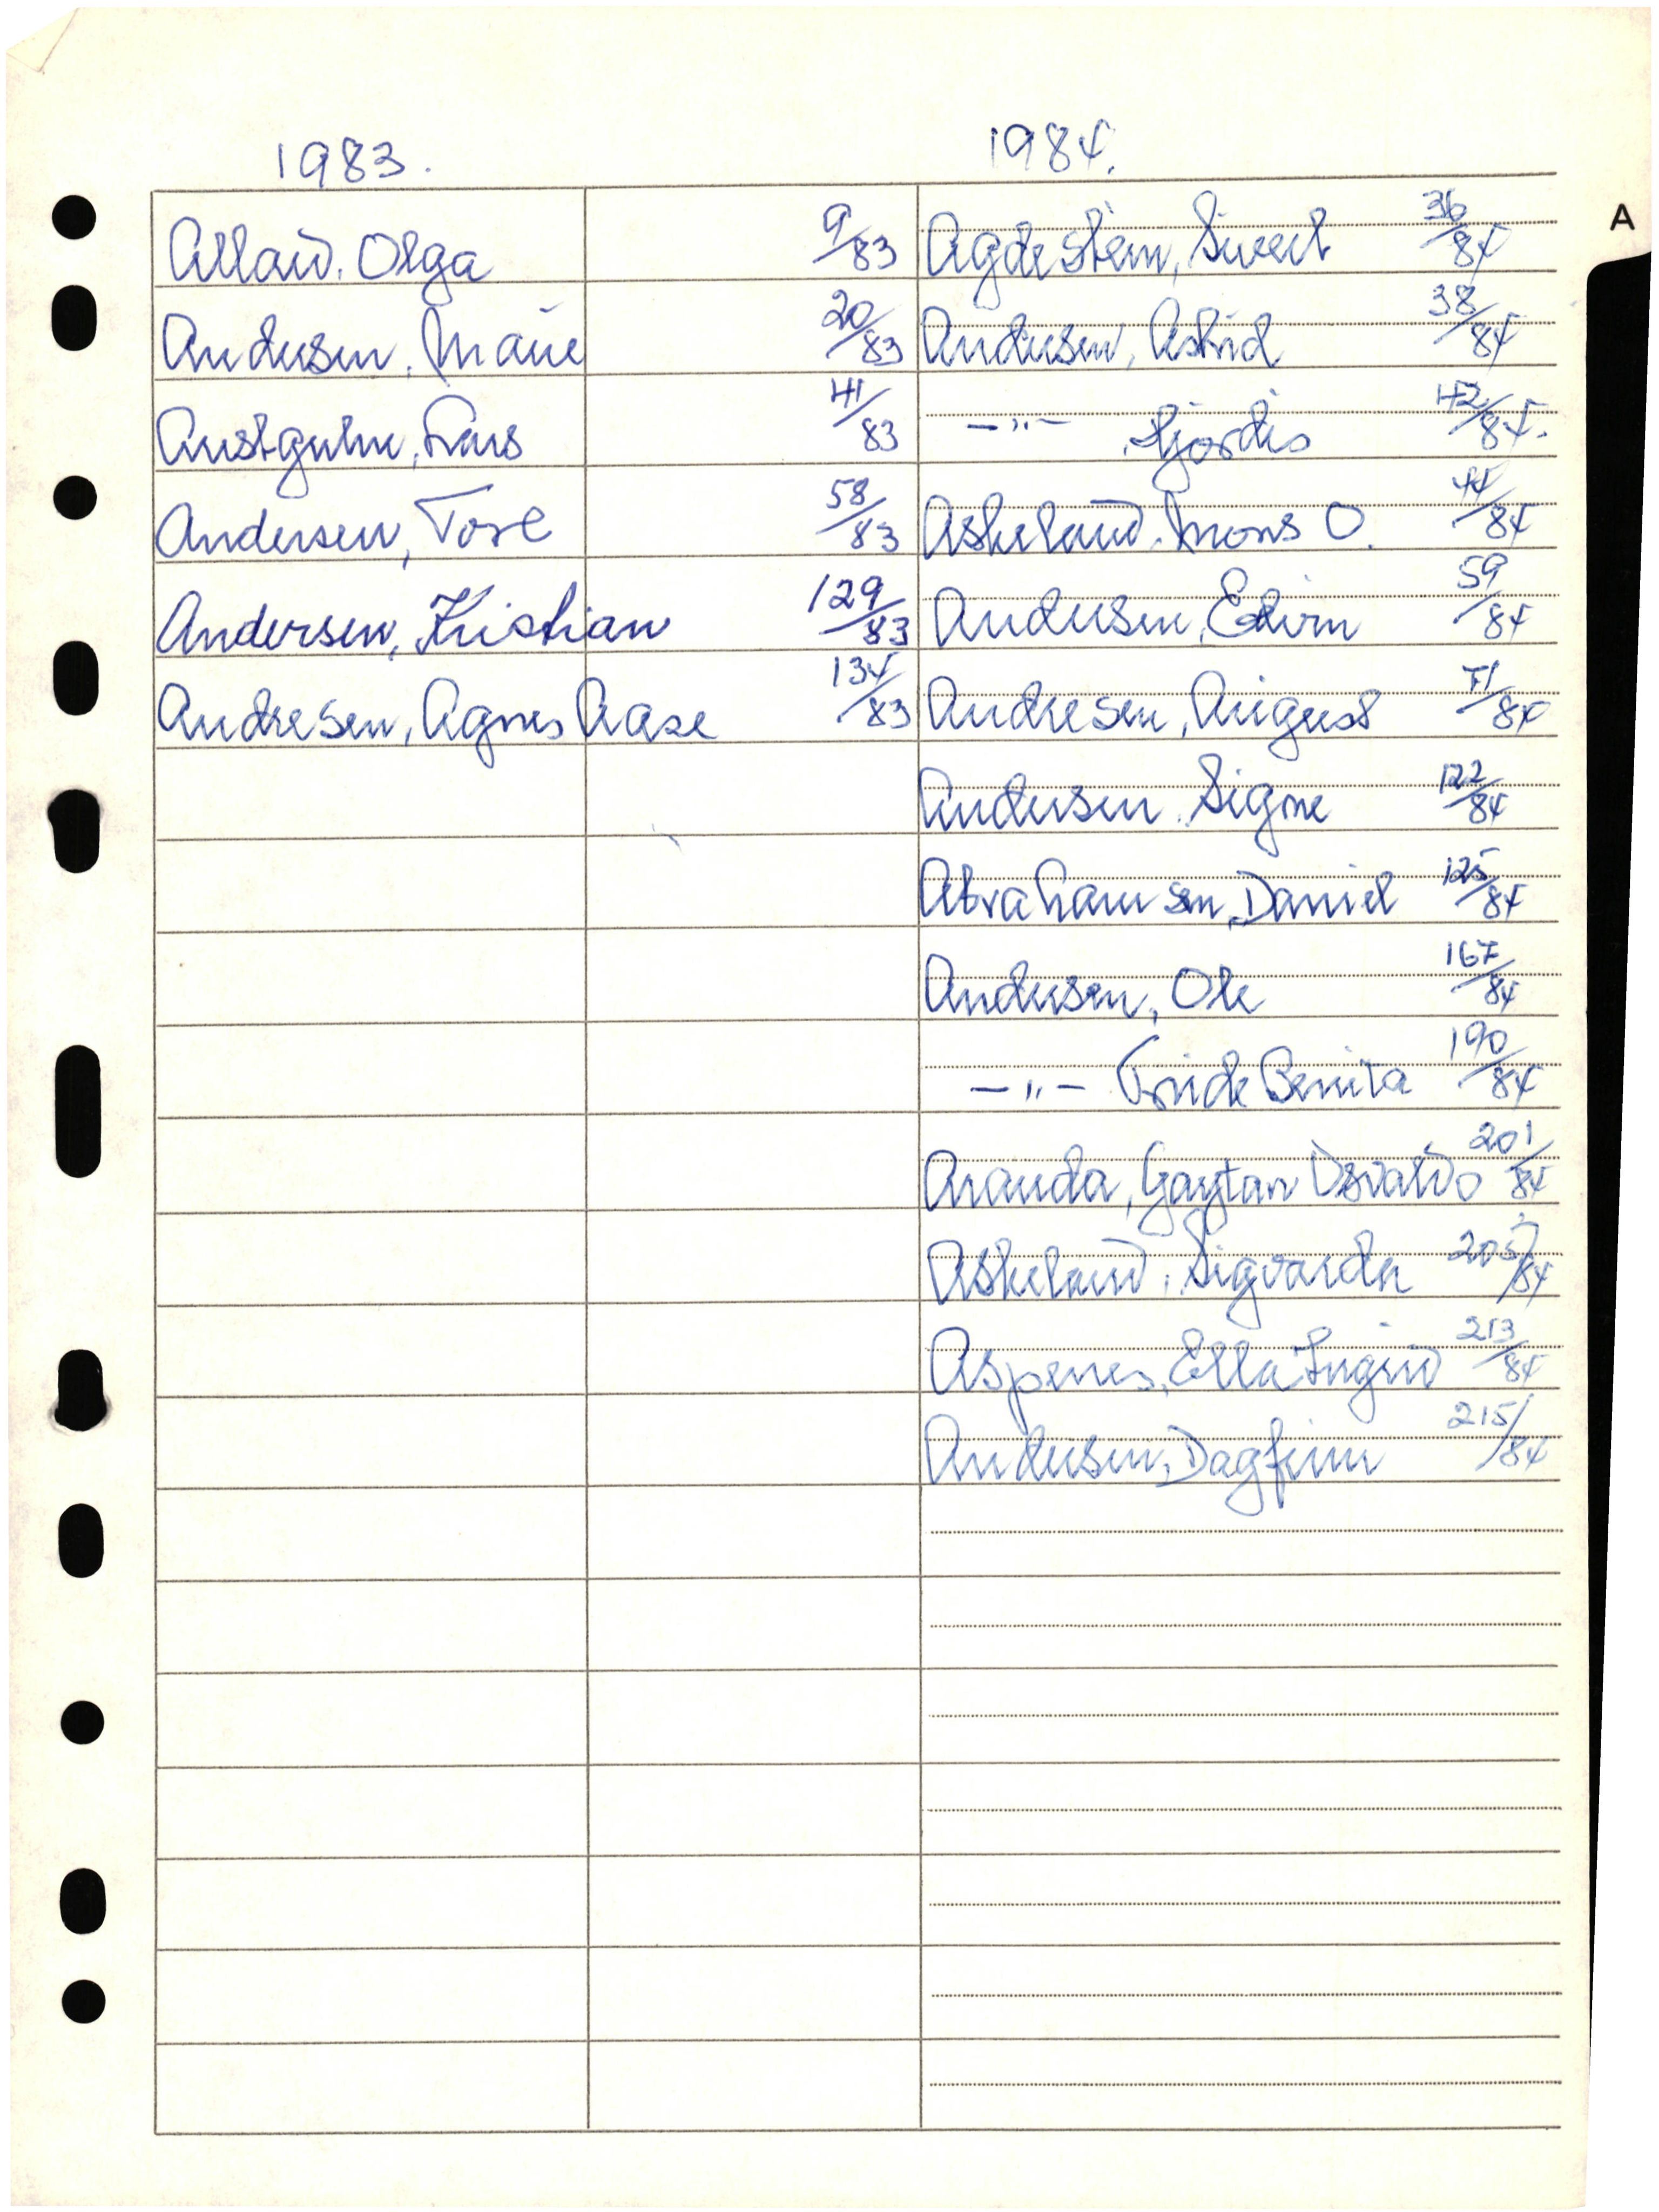 1983.
Alland, Olga 9/83
Andersen, Marie 20/83
Austgulen, Lars 41/83
Andersen, Tore 58/83
Andersen, Kristian 129/83
Andresen, Agnes Aase 134/83
1984.
A
Agdestein, Sivert 36/84
Andersen, Astrid 38/84
-"- , Hjørdis 42/84.
Askeland, Mons O. 44/84
Andersen, Edvin 59/84
Andresen, August 71/84
Andersen, Signe 122/84
Abrahamsen, Daniel 125/84
Andersen, Ole 167/84
-"- Benita 190/84
Aranda, Gaytan Osvaldo 201/84
Askeland, Sigvarda /84
Aspenes, Ella Ingrid 213/84
Andersen, Dagfinn 215/84